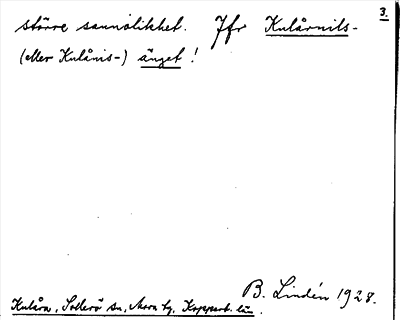 3.
större sannolikhet. Jfr Kulårnils-
(eller Kulånis-) änget!
B. Lindén 1928.
Kulåra, Sollerö sn, Mora tg, Kopparb. län.